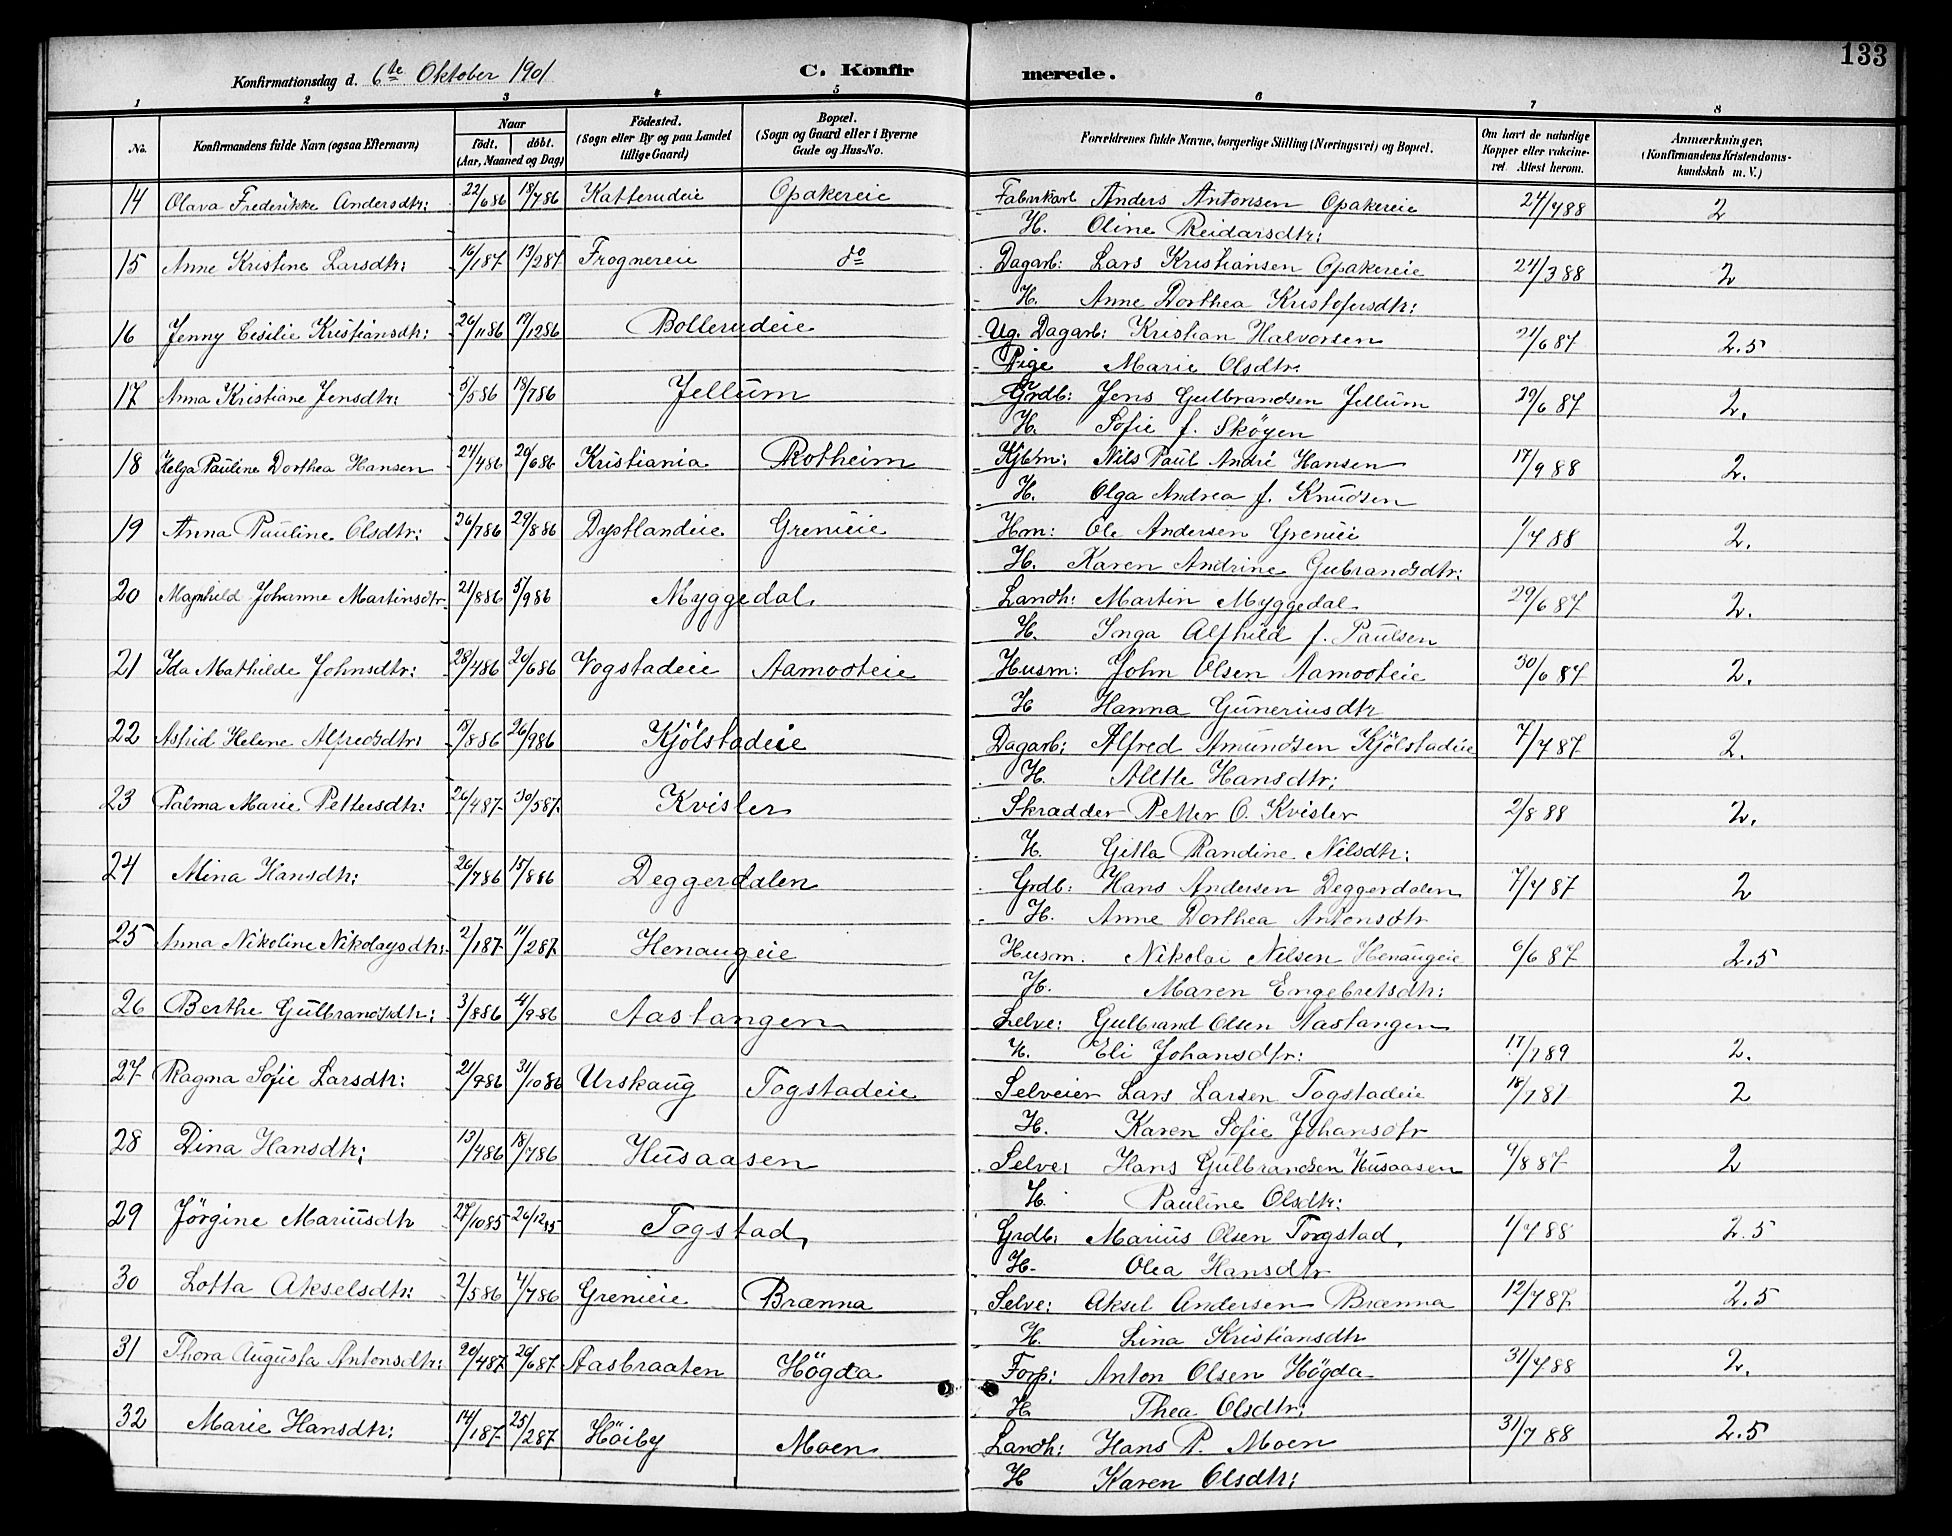 133
Konfirmationsdag d. 6te Oktober 1901 C. Konfirmerede.
1 2 3 4 5 6 7 8
No. Konfirmandens fulde Navn (ogsaa Efternavn) Naar født. døbt. (Aar, Maaned og Dag) Födested. (Sogn eller By og paa Landet tillige Gaard) Bopæl. (Sogn og Gaard eller i Byerne Gade og Hus-No. Forældrenes fulde Navne, borgerlige Stilling (Næringsvei) og Bopæl. Om havt de naturlige Kopper eller vakcineret. Attest herom. Anmærkninger, (Konfirmandens Kristendomskundskab m. V.)
14 Olava Frederikke Andersdtr: 22/6 86 18/7 86 Katterudeie Opakereie Fabrikarb Anders Antonsen Opakereie 24/7 88 2
H. Oline Reidarsdtr:
15 Anne Kristine Larsdtr: 16/1 87 13/2 87 Frognereie do Dagarb: Lars Kristiansen Opakereie 24/3 88 2
H. Anne Dorthea Kristofersdtr:
16 Jenny Cesilie Kristiansdtr: 26/11 86 17/12 86 Bollerudeie Ug. Dagarb: Kristian Halvorsen 21/6 87 2.5
Pige Marie Olsdtr.
17 Anna Kristiane Jensdtr: 5/5 86 18/7 86 Jellum Grdb: Jens Gulbrandsen Jellum 29/6 87 2.
H. Sofie f. Skøyen
18 Helga Pauline Dorthea Hansen 24/4 86 20/6 86 Kristiania Rotheim Kjbm: Nils Paul André Hansen 17/9 88 2.
H. Olga Andrea f. Knudsen
19 Anna Pauline Olsdtr: 26/7 86 29/8 86 Dystlandeie Grenieie Hm: Ole Andersen Grenieie 1/7 88 2.
H. Karen Andrine Gubrandsdtr:
20 Magnhild Johanne Martinsdtr 21/8 86 5/9 86 Myggedal Landh: Martin Myggedal 29/6 87 2.
H. Inga Alfhild f. Paulsen
21 Ida Mathilde Johnsdtr: 28/4 86 20/6 86 Vogstadeie Aamooteie Husm: John Olsen Aamooteie 30/6 87 2.
H Hanna Guneriusdtr
22 Astrid Helene Alfredsdtr: 18/8 86 26/9 86 Kjölstadeie Dagarb: Alfred Amundsen Kjölstadeie 7/7 87 2.
H. Alette Hansdtr:
23 Palma Marie Pettersdtr: 26/4 87 30/5 87 Kvisler Skrædder Petter O. Kvisler 2/8 88 2.
H. Gitta Randine Nilsdtr:
24 Mina Hansdtr: 26/7 86 15/8 86 Deggerdalen Grdb: Hans Andersen Deggerdalen 7/7 87 2
H. Anne Dorthea Antonsdtr
25 Anna Nikoline Nikolaysdtr: 2/1 87 11/2 87 Henaugeie Husm. Nikolai Nilsen Henaugeie 6/6 87 2.5
H. Maren Engebretsdtr:
26 Berthe Gulbrandsdtr: 3/8 86 4/9 86 Aastangen Selve: Gulbrand Olsen Aastangen
H. Eli Johansdtr: 17/7 89 2.
27 Ragna Sofie Larsdtr: 21/9 86 31/10 86 Urskaug Togstadeie Selveier Lars Larsen Togstadeie 18/7 87 2
H. Karen Sofie Johansdtr
28 Dina Hansdtr: 13/4 86 18/7 86 Husaasen Selve: Hans Gulbrandsen Husaasen 9/8 87 2
H. Pauline Olsdtr:
29 Jörgine Mariusdtr 27/10 85 26/12 85 Togstad Grdb: Marius Olsen Togstad 1/7 88 2.5
H. Olea Hansdtr
30 Lotta Akselsdtr: 2/5 86 4/7 86 Grenieie Brænna Selve: Aksel Andersen Brænna 12/7 87 2.5
H. Lina Kristiansdtr
31 Thora Augusta Antonsdtr: 20/4 87 26/6 87 Aasbraaten Högda Forp: Anton Olsen Högda 31/7 88 2.
H Thea Olsdtr:
32 Marie Hansdtr: 14/1 87 25/2 87 Höiby Moen Landh: Hans P. Moen 31/7 88 2.5
H Karen Olsdtr: